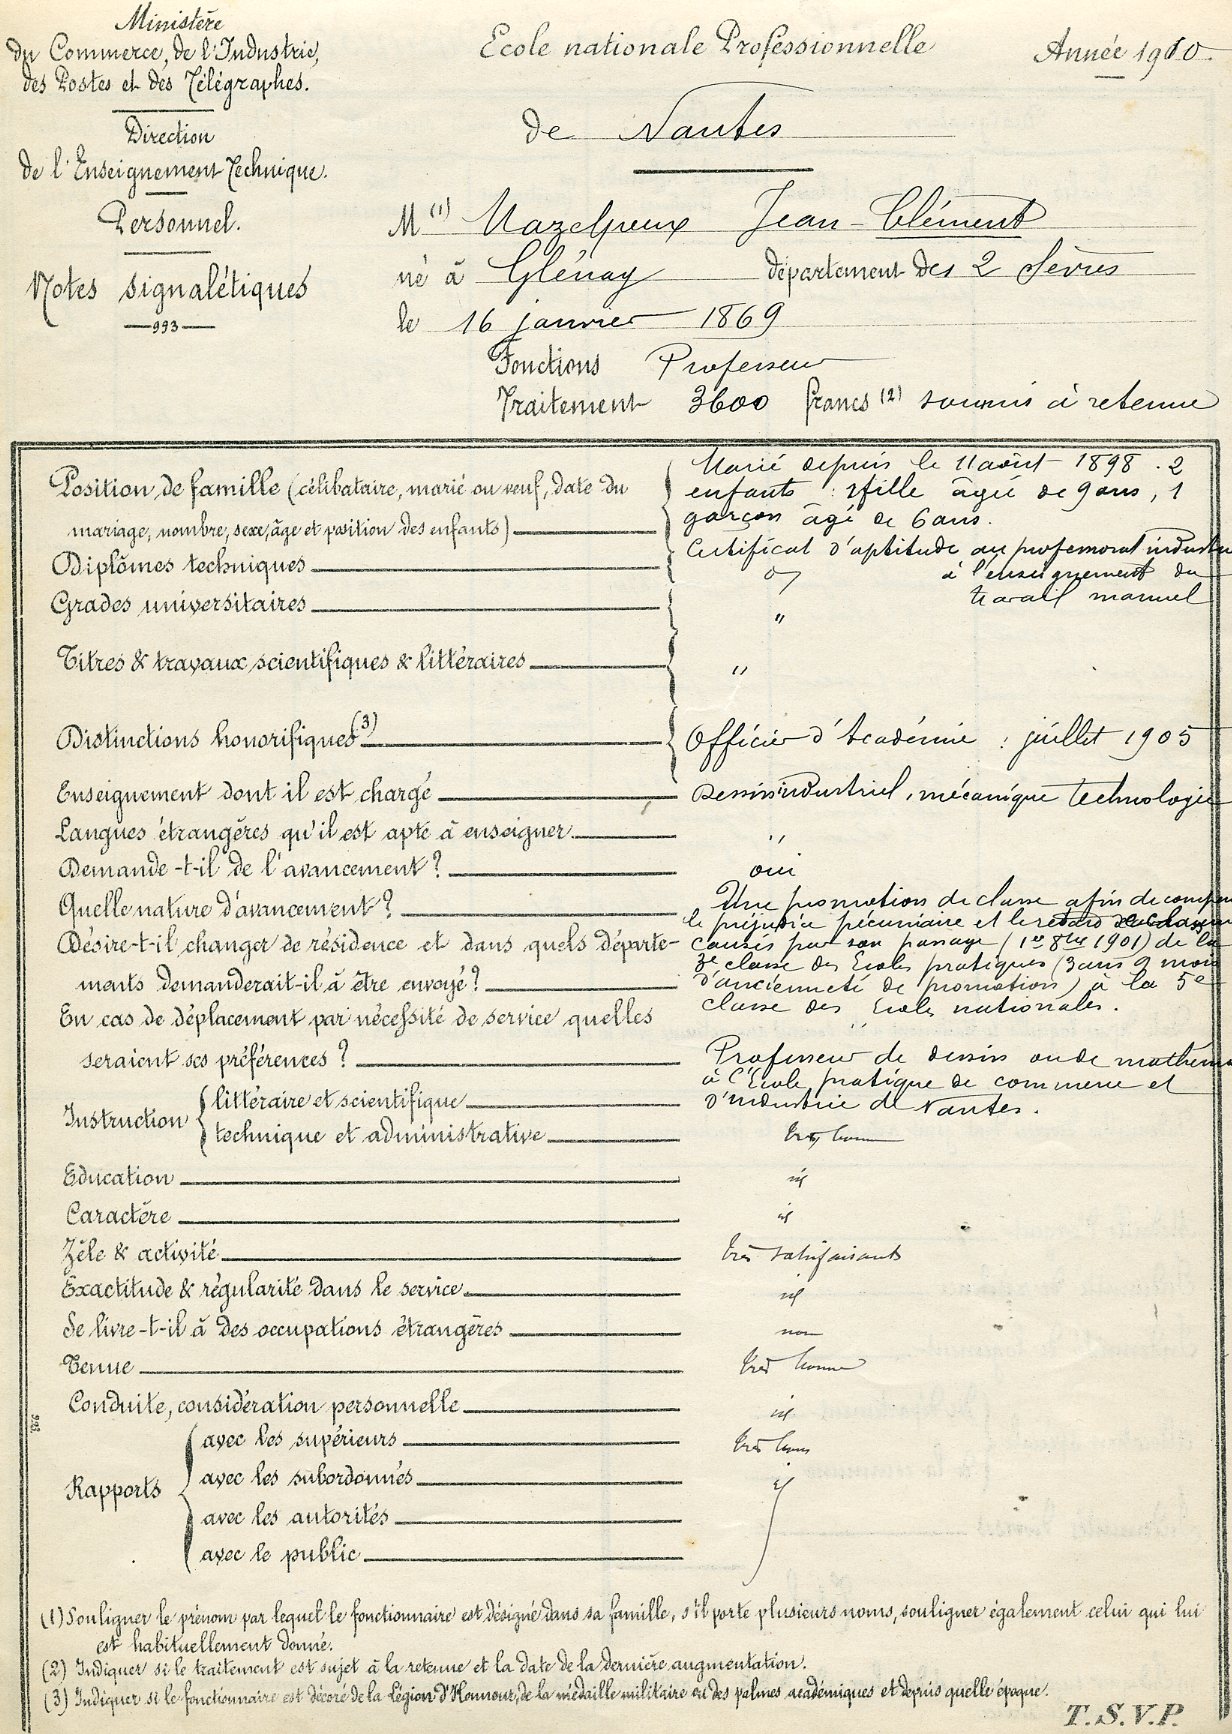 Ministère
du Commerce, de l'Industrie,
des Postes et des Télégraphes.
Direction
de l'Enseignement Technique.
Personnel.
Notes signalétiques
993
Ecole nationale Professionnelle
Année 1910.
de Nantes
M (1) Mazelpeux Jean-Clément
né à Glénay département des 2 Sèvres
le 16 janvier 1869
Fonctions Professeur
Traitement 3600 francs (2) soumis à retenue
Position de famille (célibataire, marié ou veuf, date du
mariage, nombre, sexe, âge et position des enfants)
Marié depuis le 11 août 1898. 2
enfants : 1 fille âgée de 9 ans, 1
garçon âgé de 6 ans.
Diplômes techniques
Certificat d'aptitude au professorat industri
à l'enseignement du
travail manuel
Grades universitaires "
Titres & travaux scientifiques & littéraires "
Distinctions honorifiques (3) Officier d'Académie : juillet 1905
Enseignement dont il est chargé Dessin industriel, mécanique technologie
Langues étrangères qu'il est apte à enseigner "
Demande-t-il de l'avancement ? oui
Quelle nature d'avancement ?
Une promotion de classe afin de compen
le préjudice pécuniaire et le retard de
causés par son passage (1er 8bre 1901) de la
3e classe des Ecoles pratiques (3 ans 9 mois
d'ancienneté de promotion) à la 5e
classe des Ecoles nationales.
Désire-t-il changer de résidence et dans quels départe-
ments demanderait-il à être envoyé ?
"
En cas de déplacement par nécessité de service quelles
seraient ses préférences ?
Professeur de dessin ou de mathéma
à l'Ecole pratique de commerce et
d'industrie de Nantes.
Instruction littéraire et scientifique
technique et administrative très bonne
Education id
Caractère id
Zèle & activité très satisfaisants
Exactitude & régularité dans le service id
Se livre-t-il à des occupations étrangères non
Tenue très bonne
Conduite, considération personnelle id
Rapports
avec les supérieurs très bons
avec les subordonnés id
avec les autorités
avec le public
993
(1) Souligner le prénom par lequel le fonctionnaire est désigné dans sa famille, s'il porte plusieurs noms, souligner également celui qui lui
est habituellement donné.
(2) Indiquer si le traitement est sujet à la retenue et la date de la dernière augmentation.
(3) Indiquer si le fonctionnaire est décoré de la Légion d'Honneur, de la médaille militaire ou des palmes académiques et depuis quelle époque.
T.S.V.P.